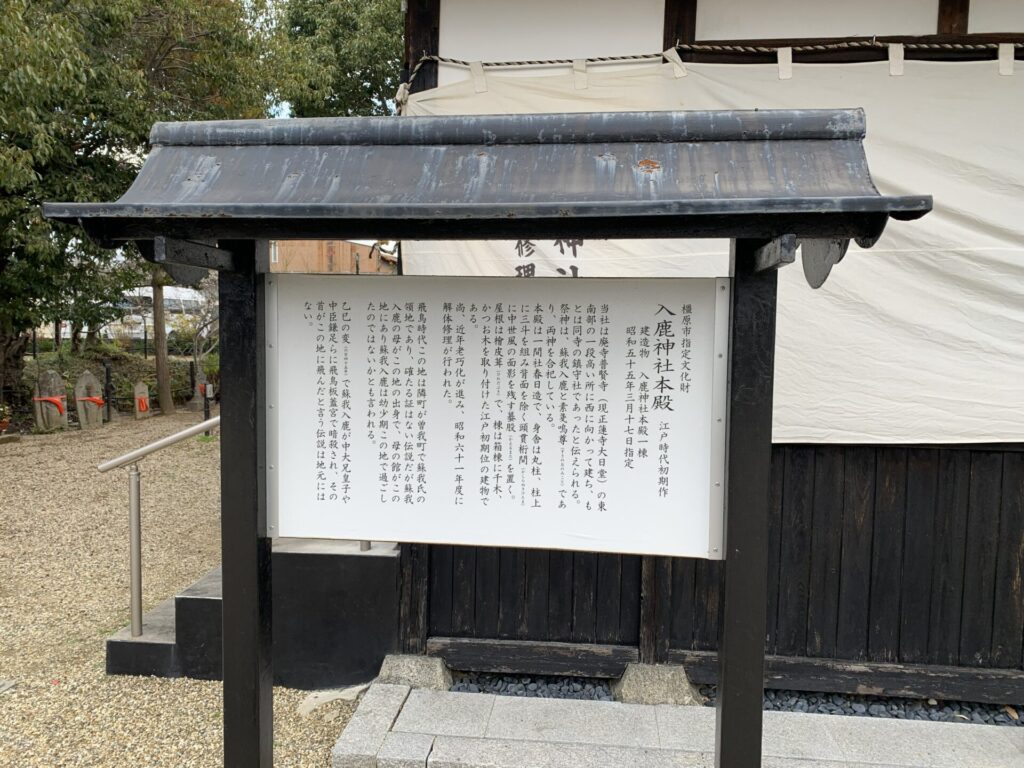 橿原市指定文化財
入鹿神社本殿 江戸時代初期作
建造物 入鹿神社本殿一棟
昭和五十五年三月十七日指定
当社は廃寺普賢寺(現正蓮寺大日堂)の東
南部の一段高い所に西に向かって建ち、も
とは同寺の鎮守社であったと伝えられる。
祭神は、蘇我入鹿と素戔嗚尊(すさのおのみこと)であ
り、両神を合祀している。
本殿は一間社春日造で、身舎は丸柱、柱上
に三斗を組み背面を除く頭貫桁間(かしらぬきけたま)
に中世風の面影を残す蟇股(かえるまた)を置く。
屋根は檜皮葺(ひわだぶき)で、棟は箱棟に千木、
かつお木を取り付けた江戸初期位の建物で
ある。
尚、近年老巧化が進み、昭和六十一年度に
解体修理が行われた。
飛鳥時代この地は隣町が曽我町で蘇我氏の
領地であり、確たる証はない伝説だが蘇我
入鹿の母がこの地の出身で、母の館がこの
地にあり蘇我入鹿は幼少期この地で過ごし
たのではないかとも言われる。
乙巳の変、で蘇我入鹿が中大兄皇子や
中臣鎌足らに飛鳥板蓋宮で暗殺され、その
首がこの地に飛んだと言う伝説は地元には
ない。
神社
修理